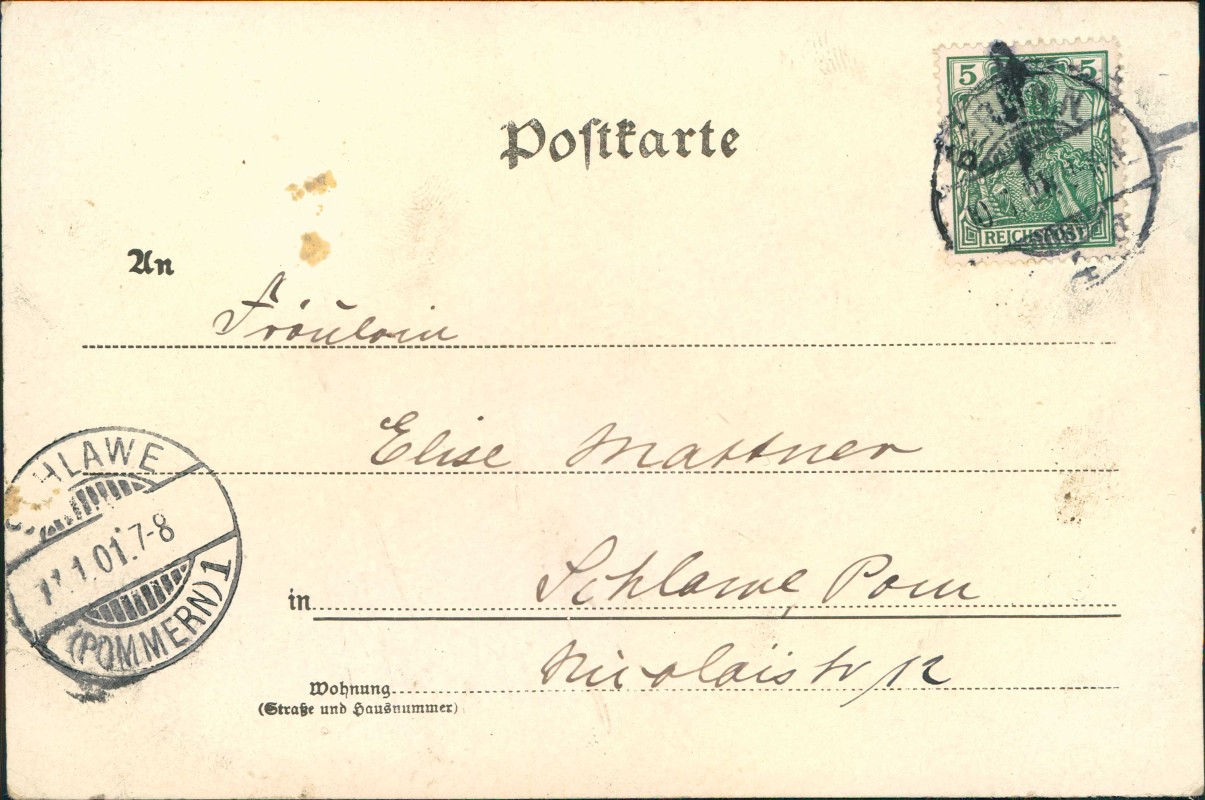 Postkarte
5 5
REICHSPOST
An
Fräulein
Elise Mattner
SCHLAWE
11.1.01.7-8
(POMMERN) 1
in Schlawe, Pom
Nicolaistr 12
Wohnung
(Straße und Hausnummer)